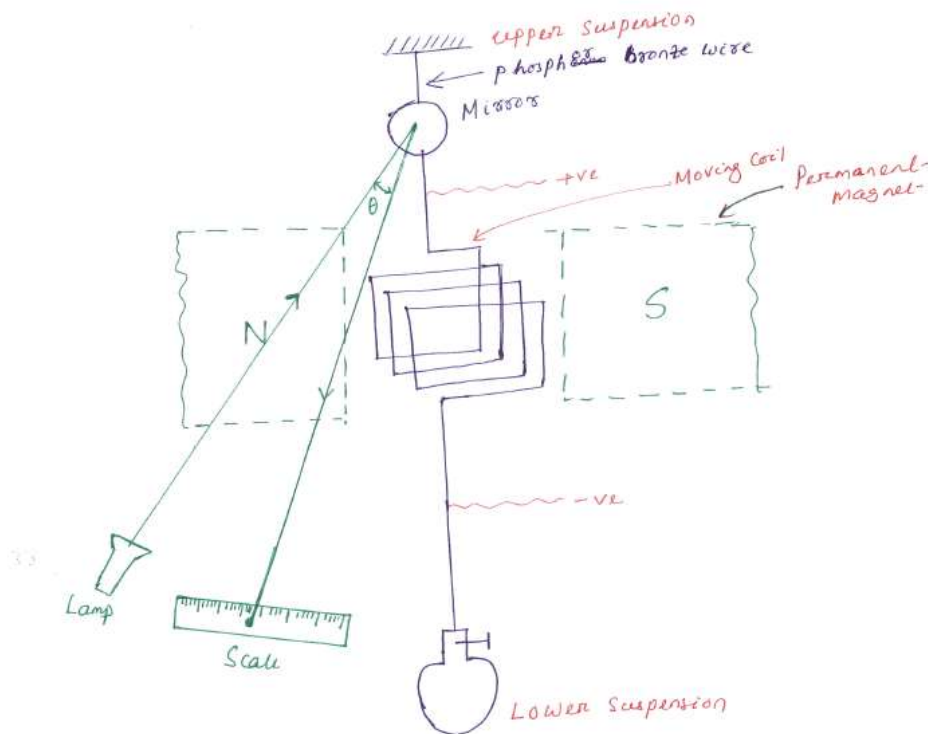 upper suspension
phospher Bronze wire
Mirror
+ve
Moving Coil
Permanent-
Magnet-
θ
N
S
-ve
Lamp
Scale
Lower Suspension